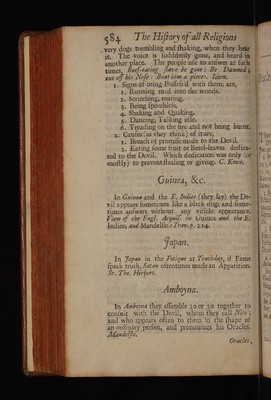 584 The History of all Religions
very dogs trembling and shaking, when they hear
it. The voice is suddenly gone, and heard in
another place. The people use to answer at such
times, Beef-eating slave be gone: Be Damned;
cut off his Nose: Beat him a pieces. Idem.
1. Signs of being Possess'd with them, are,
1. Running mad into the woods.
2. Scrieching, roaring.
3. Being speechless.
4. Shaking and Quaking.
5. Dancing, Talking idly.
6. Treading on the fire and not being burnt.
2. Causes (as they think) of it are,
1. Breach of promise made to the Devil.
2. Eating some fruit or Betel-leaves dedica-
ted to the Devil. Which dedication was only (or
mostly) to prevent stealing or giving. C. Knox.
Guinea, &c.
In Guinea and the E. Indies (they say) the De-
vil appears sometimes like a black dog; and some-
times answers without any visible appearance.
View of the Engl. Acquis. in Guinea and the E.
Indies; and Mandelslo's Trav. p. 214.
Japan.
In Japan in the Fotique at Tenchaday, if Fame
speak truth, Satan oftentimes made an Apparition.
Sr. Tho. Herbert.
Amboyna.
In Amboyna they assemble 20 or 30 together to
consult with the Devil, whom they call
and who appears often to them in the shape of
an ordinary person, and pronounces his Oracles.
Mandelslo.
Oracles,